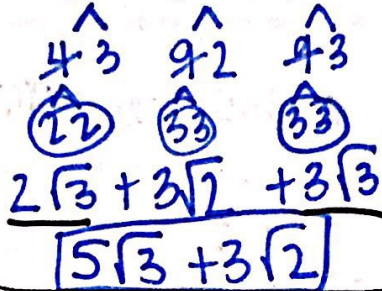 4 3 9 2 9 3
2 2 3 3 3 3
2√3 + 3√2 + 3√3
5√3 + 3√2